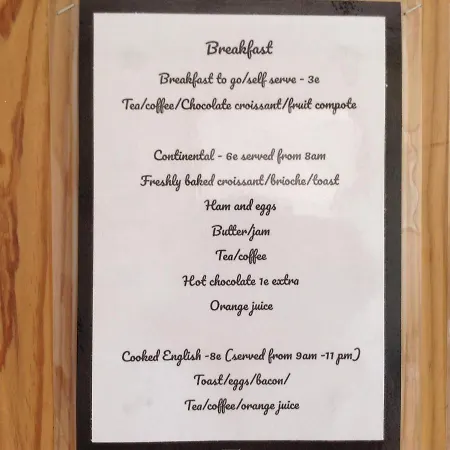 Breakfast
Breakfast to go/self serve - 3e
Tea/coffee/Chocolate croissant/fruit compote
Continental - 6e served from 8am
Freshly baked croissant/brioche/toast
Ham and eggs
Butter/jam
Tea/coffee
Hot chocolate 1e extra
Orange juice
Cooked English -8e (served from 9am -11 pm)
Toast/eggs/bacon/
Tea/coffee/orange juice